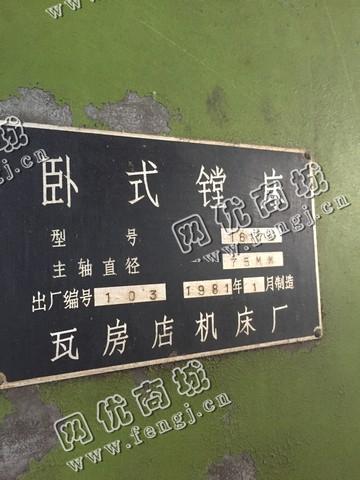 网优商城
www.fengj.cn
卧式镗床
型号
主轴直径 75MM
出厂编号 103 1981年1月制造
瓦房店机床厂
网优商城
www.fengj.cn
网优商城
www.fengj.cn